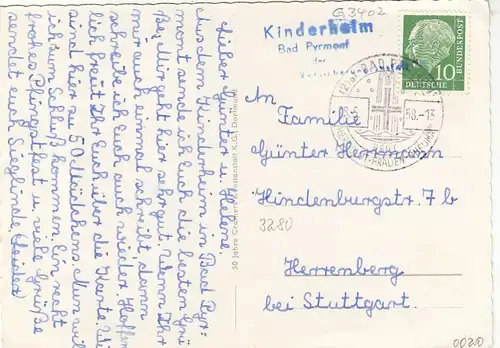 Lieber Günter u. Helene.
Aus dem Kinderheim in Bad Pyr-
sende ich Euch die besten Grü
ße. Mir geht hier sehr gut. Wenn Ihr
mir auch einmal schreibt, dann
schreibe ich Euch auch wieder. Hoffen
lich freut Ihr Euch über die Karte. Wi
sind hier zu 50 Mädchens. Nun will
ich zum Schluß kommen. Ein recht
frohes Pfingstfest u. viele Grüße
sendet euch Sieglinde
50 Jahre Cramers Kunstanstalt K.G., Dortmund
G3402
Kinderheim
Bad Pyrmont
der
BAD PYRMONT
58.-13
DEUTSCHE BUNDESPOST
10
An
Familie
Günter Herrmann
Hindenburgstr. 7 b
3280
Herrenberg
bei Stuttgart.
0020